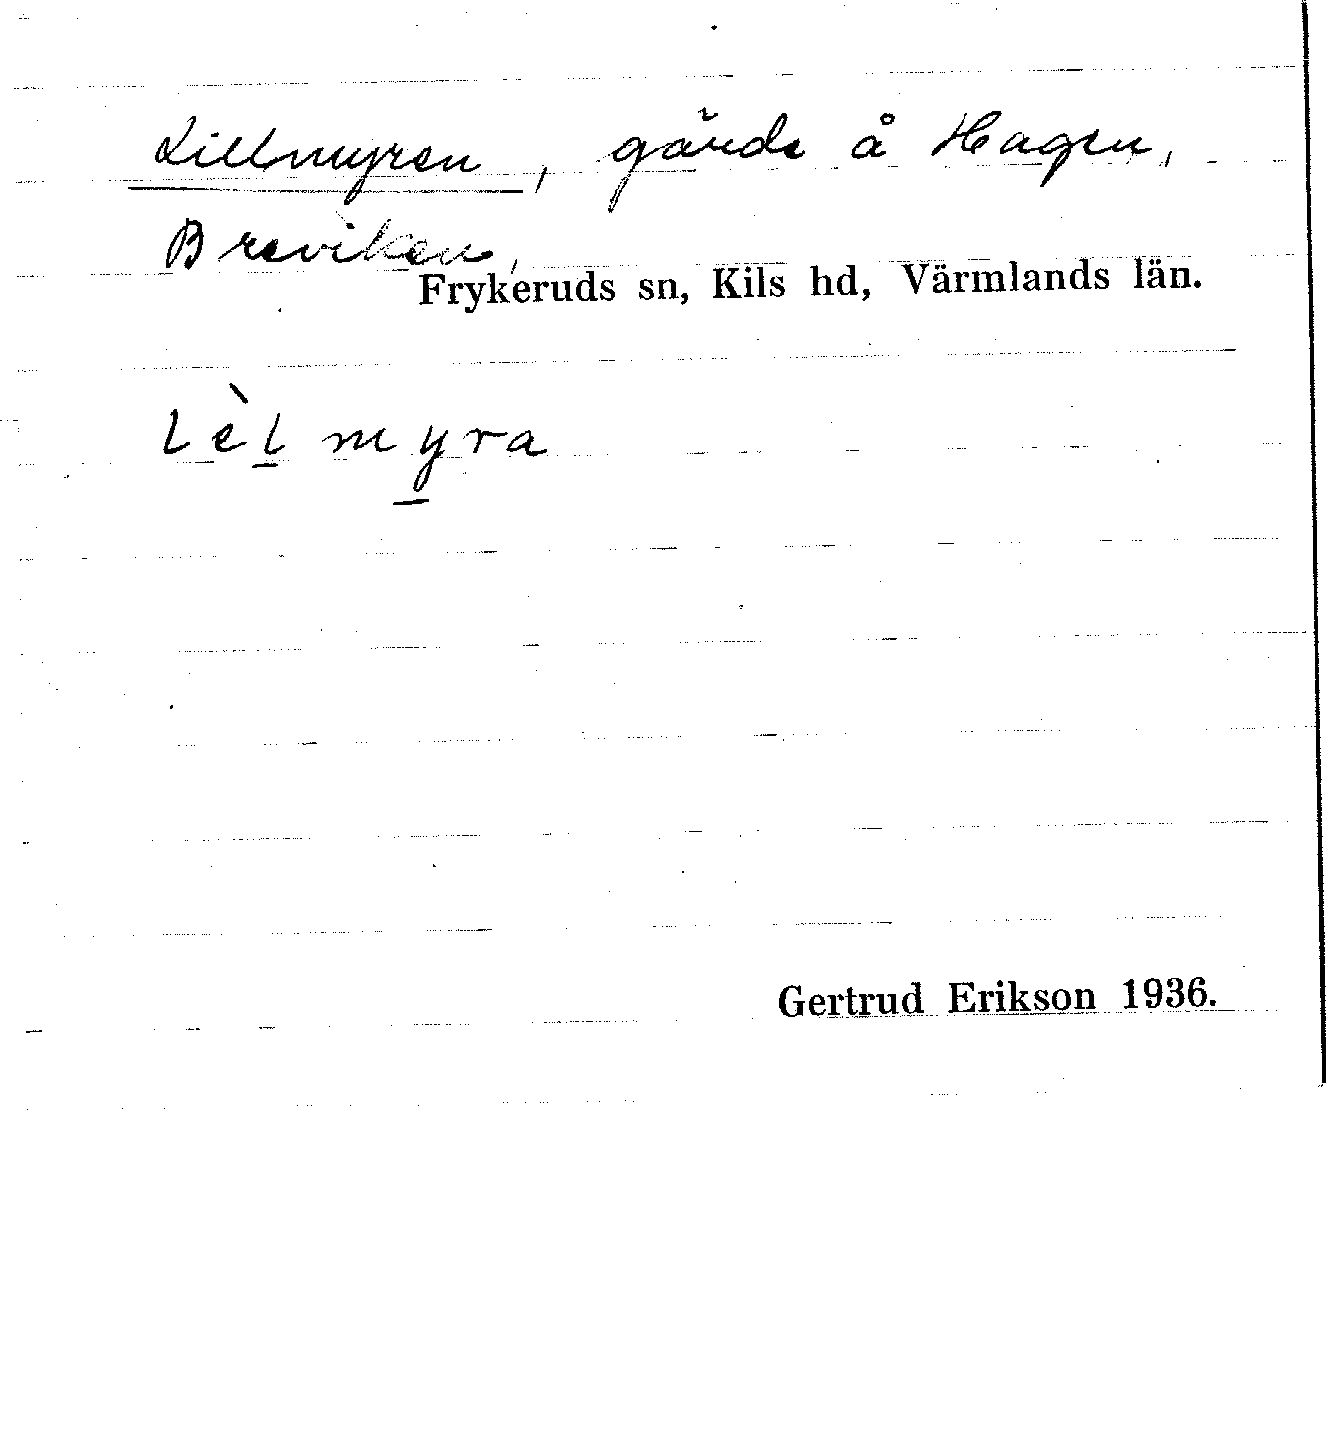 Lillmyren, gärde å Hagen,
Breviken,
Frykeruds sn, Kils hd, Värmlands län.
lèlmyra
Gertrud Erikson 1936.